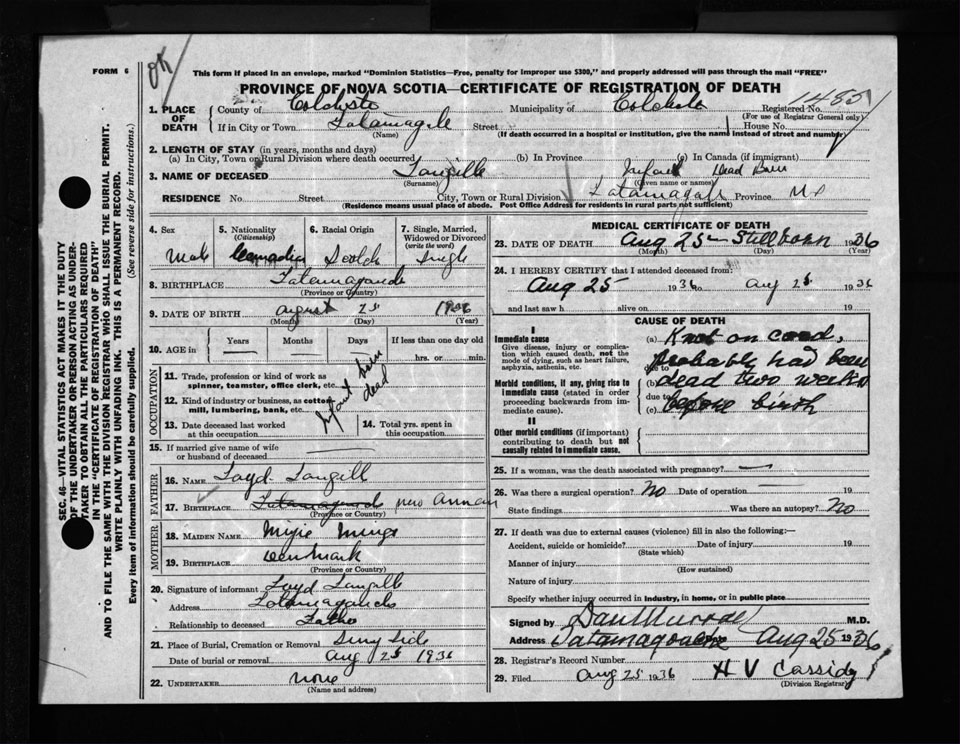 OK
FORM 6
This form if placed in an envelope, marked "Dominion Statistics—Free, penalty for improper use $300," and properly addressed will pass through the mail "FREE"
PROVINCE OF NOVA SCOTIA—CERTIFICATE OF REGISTRATION OF DEATH
1. PLACE OF DEATH County of Municipality of Registered No.
(For use of Registrar General only)
If in City or Town Street House No.
(Name) (If death occurred in a hospital or institution, give the name instead of street and number)
2. LENGTH OF STAY (in years, months and days)
(a) In City, Town or Rural Division where death occurred (b) In Province (c) In Canada (if immigrant)
3. NAME OF DECEASED Langille Infant Dead Born
(Surname) (Given name or names)
RESIDENCE No. Street City, Town or Rural Division Province
(Residence means usual place of abode. Post Office Address for residents in rural parts not sufficient)
4. Sex 5. Nationality (Citizenship) 6. Racial Origin 7. Single, Married, Widowed or Divorced (write the word)
Male Canadian Scotch Single
8. BIRTHPLACE
(Province or Country)
9. DATE OF BIRTH August 25 1936
(Month) (Day) (Year)
10. AGE in Years Months Days If less than one day old
hrs. or min.
OCCUPATION
11. Trade, profession or kind of work as spinner, teamster, office clerk, etc.
12. Kind of industry or business, as cotton mill, lumbering, bank, etc.
Infant born dead
13. Date deceased last worked at this occupation 14. Total yrs. spent in this occupation
15. If married give name of wife or husband of deceased
FATHER
16. NAME Loyd Langill
17. BIRTHPLACE New Annan
(Province or Country)
MOTHER
18. MAIDEN NAME
19. BIRTHPLACE Denmark
(Province or Country)
20. Signature of informant Loyd Langille
Address
Relationship to deceased Father
21. Place of Burial, Cremation or Removal
Date of burial or removal Aug 25 1936
22. UNDERTAKER none
(Name and address)
MEDICAL CERTIFICATE OF DEATH
23. DATE OF DEATH Aug 25 Stillborn 1936
(Month) (Day) (Year)
24. I HEREBY CERTIFY that I attended deceased from:
Aug 25 1936 to Aug 25 1936
and last saw h alive on 19
CAUSE OF DEATH
I
Immediate cause
Give disease, injury or complication which caused death, not the mode of dying, such as heart failure, asphyxia, asthenia, etc.
(a) Knot on cord,
due to probably had been
Morbid conditions, if any, giving rise to immediate cause (stated in order proceeding backwards from immediate cause).
(b) dead two weeks
due to
(c) before birth
II
Other morbid conditions (if important) contributing to death but not causally related to immediate cause.
25. If a woman, was the death associated with pregnancy?
26. Was there a surgical operation? No Date of operation 19
State findings Was there an autopsy? No
27. If death was due to external causes (violence) fill in also the following:—
Accident, suicide or homicide? Date of injury 19
(State which)
Manner of injury
(How sustained)
Nature of injury
Specify whether injury occurred in industry, in home, or in public place
Signed by Dan Murray M.D.
Address Tatamagouche Aug 25 1936
28. Registrar's Record Number
29. Filed Aug 25 1936 H V Cassidy
(Division Registrar)
SEC. 46—VITAL STATISTICS ACT MAKES IT THE DUTY
OF THE UNDERTAKER OR PERSON ACTING AS UNDER-
TAKER TO OBTAIN ALL THE PARTICULARS REQUIRED
IN THE "CERTIFICATE OF REGISTRATION OF DEATH"
AND TO FILE THE SAME WITH THE DIVISION REGISTRAR WHO SHALL ISSUE THE BURIAL PERMIT.
WRITE PLAINLY WITH UNFADING INK. THIS IS A PERMANENT RECORD.
Every item of information should be carefully supplied. (See reverse side for instructions.)